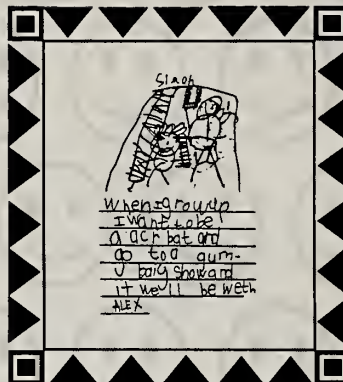 When I grow up
I want to be
a acr bat and
go to a gum-
y baiy show and
it we'll be weth
ALEX